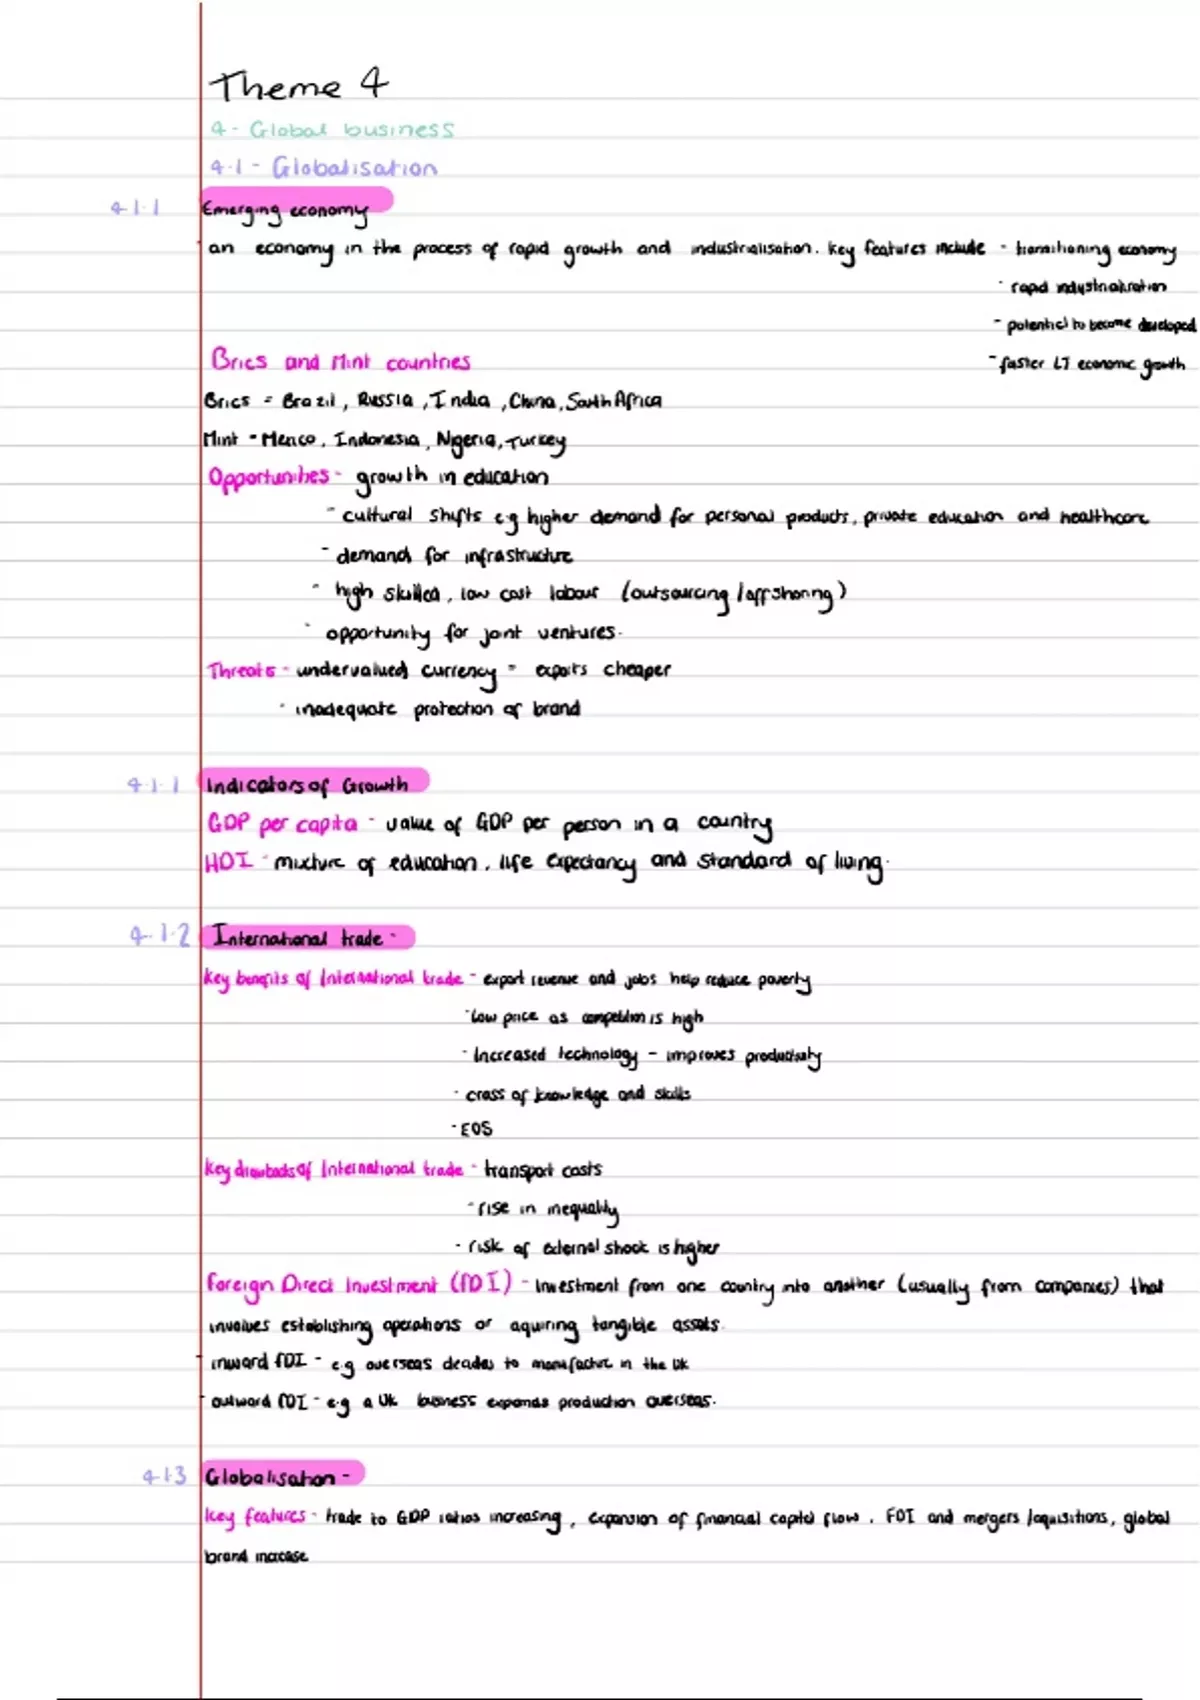 Theme 4
4 - Global business
4.1 - Globalisation
4.1.1 Emerging economy
an economy in the process of rapid growth and industrialisation. Key features include - transitioning economy
- rapid industrialisation
- potential to become developed
- faster LT economic growth
Brics and Mint countries
Brics = Brazil, Russia, India, China, South Africa
Mint - Mexico, Indonesia, Nigeria, Turkey
Opportunities - growth in education
- cultural shifts e.g higher demand for personal products, private education and healthcare
- demand for infrastructure
- high skilled, low cost labour (outsourcing / offshoring)
- opportunity for joint ventures.
Threats - undervalued currency = exports cheaper
- inadequate protection of brand
4.1.1 Indicators of Growth
GDP per capita - value of GDP per person in a country
HDI - mixture of education, life expectancy and standard of living.
4.1.2 International trade -
Key benefits of International trade - export revenue and jobs help reduce poverty
- low price as competition is high
- Increased technology - improves productivity
- cross of knowledge and skills
- EOS
Key drawbacks of International trade - transport costs
- rise in inequality
- risk of external shock is higher
Foreign Direct Investment (FDI) - Investment from one country into another (usually from companies) that
involves establishing operations or aquiring tangible assets.
- inward FDI - e.g overseas decides to manufacture in the UK
- outward FDI - e.g a UK business expands production overseas.
4.1.3 Globalisation -
Key features - trade to GDP ratios increasing, expansion of financial capital flow, FDI and mergers /aquisitions, global
brand increase